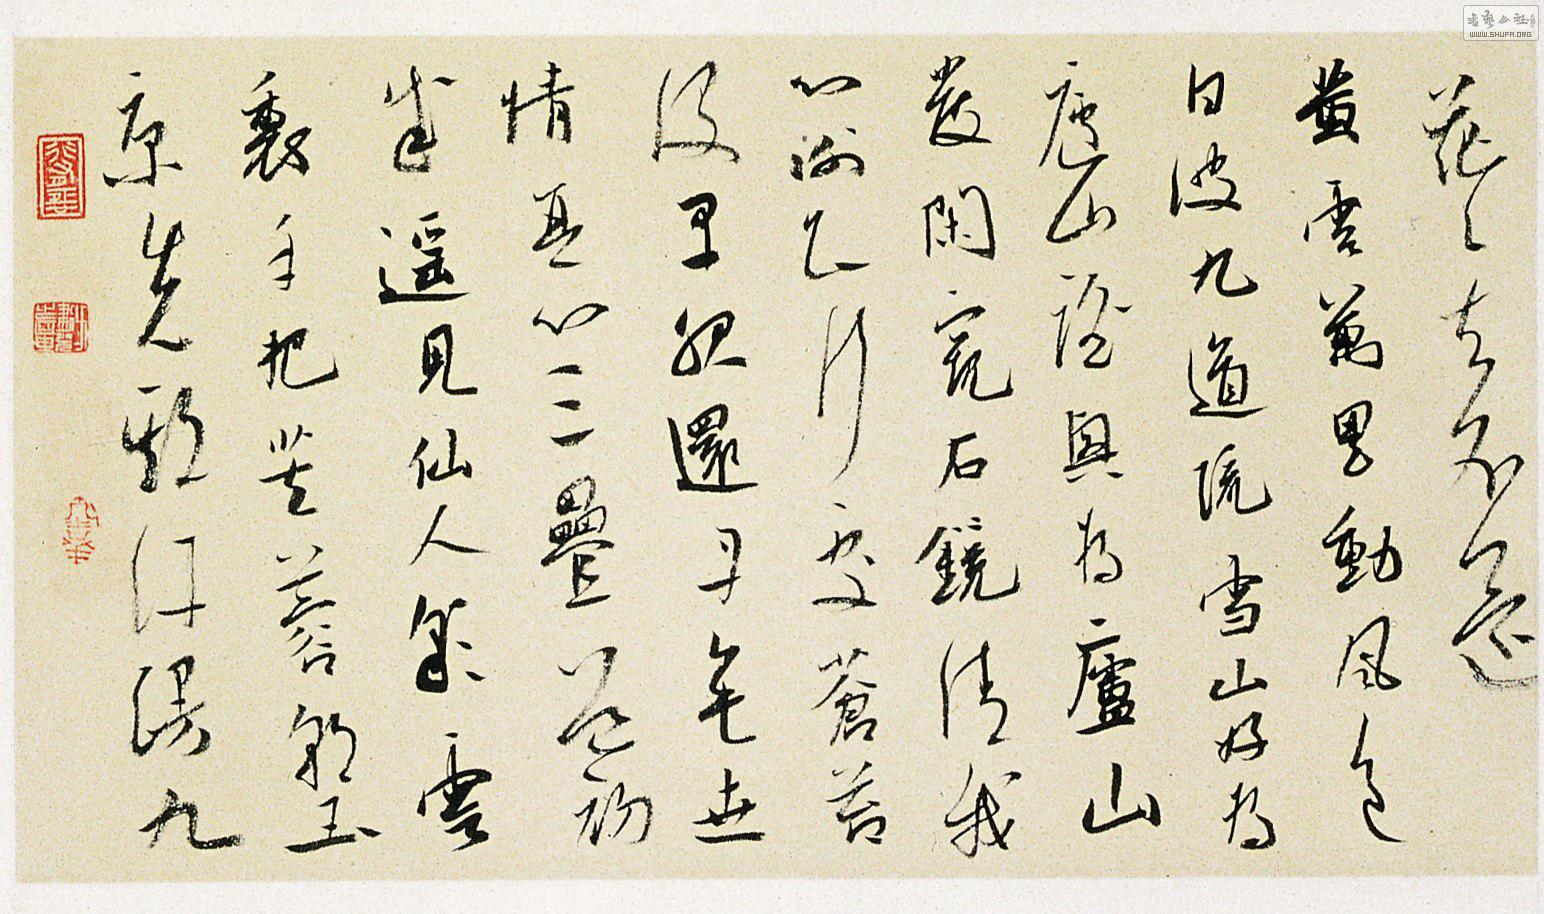 茫〻去不還
黄雲萬里動風色
白波九道流雪山好為
廬山謠興為廬山
發閑窺石鏡清我
心謝公行處蒼苔
没早服還丹無世
情琴心三疊道初
成遥見仙人彩雲
裏手把芙蓉朝玉
京先期汗漫九
WWW.SHUFA.ORG